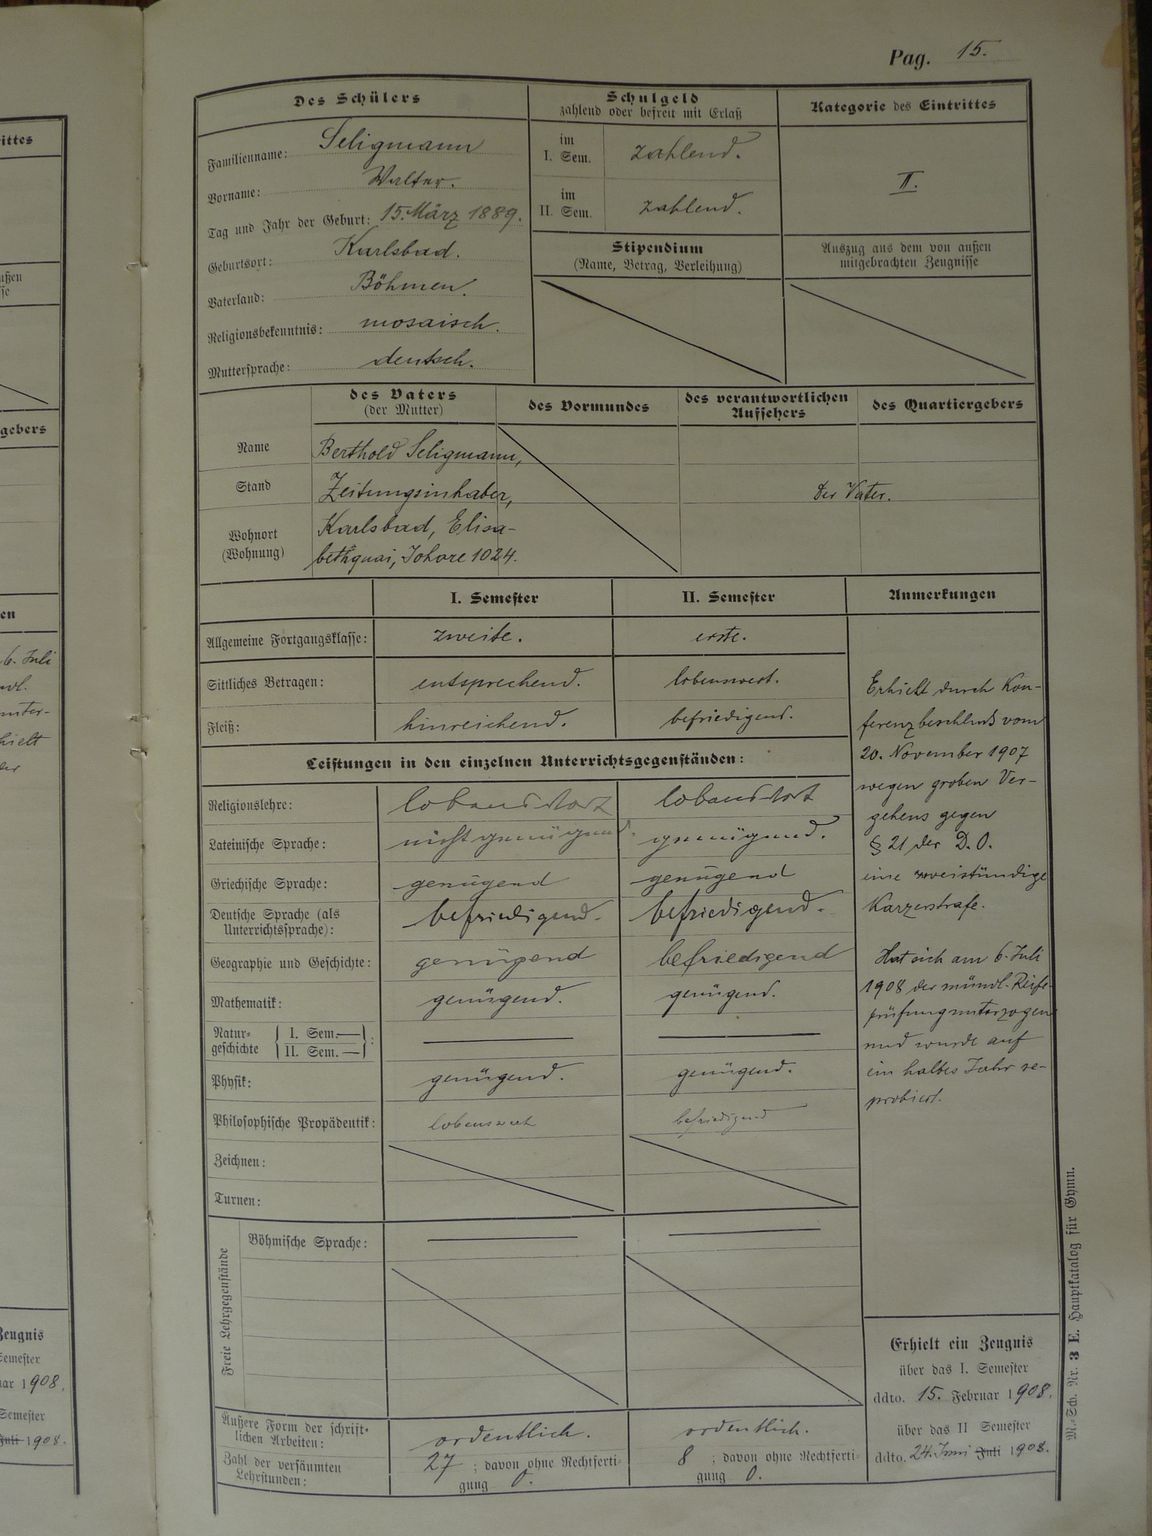 Pag. 15.
Des Schülers
Familienname: Seligmann
Vorname: Walter.
Tag und Jahr der Geburt: 15. März 1889.
Geburtsort: Karlsbad.
Vaterland: Böhmen.
Religionsbekenntnis: mosaisch.
Muttersprache: deutsch.
Schulgeld
zahlend oder befreit mit Erlaß
im
I. Sem. zahlend.
im
II. Sem. zahlend.
Stipendium
(Name, Betrag, Verleihung)
Kategorie des Eintrittes
II.
Auszug aus dem von außen
mitgebrachten Zeugnisse
des Vaters
(der Mutter)
des Vormundes
des verantwortlichen
Aufsehers
des Quartiergebers
Name Berthold Seligmann,
Stand Zeitungsinhaber, Der Vater.
Wohnort
(Wohnung)
Karlsbad, Elisa-
bethquai, 1024.
I. Semester II. Semester Anmerkungen
Allgemeine Fortgangsklasse: zweite. erste.
Sittliches Betragen: entsprechend. lobenswert.
Fleiß: hinreichend. befriedigend.
Leistungen in den einzelnen Unterrichtsgegenständen:
Religionslehre: lobenswert lobenswert
Lateinische Sprache: nicht genügend. genügend.
Griechische Sprache: genügend genügend
Deutsche Sprache (als
Unterrichtssprache): befriedigend. befriedigend.
Geographie und Geschichte: genügend befriedigend
Mathematik: genügend. genügend.
Natur-
geschichte
I. Sem.—
II. Sem.—
Physik: genügend. genügend.
Philosophische Propädeutik: lobenswert befriedigend
Zeichnen:
Turnen:
Freie Lehrgegenstände
Böhmische Sprache:
Äußere Form der schrift-
lichen Arbeiten: ordentlich. ordentlich.
Zahl der versäumten
Lehrstunden:
27 ; davon ohne Rechtferti-
gung 0.
8 ; davon ohne Rechtferti-
gung 0.
Erhielt durch Kon-
ferenzbeschluß vom
20. November 1907
wegen groben Ver-
gehens gegen
§ 21 der D. O.
eine zweistündige
Karzerstrafe.
Hat sich am 6. Juli
1908 der mündl. Reife-
prüfung unterzogen
und wurde auf
ein halbes Jahr re-
probiert.
Erhielt ein Zeugnis
über das I. Semester
ddto. 15. Februar 1908.
über das II Semester
ddto. 24. Juni Juli 1908.
M.-Sch. Nr. 3 E. Hauptkatalog für Gymn.
ittes
gebers
en
6. Juli
Zeugnis
Semester
1908.
Semester
Juli 1908.